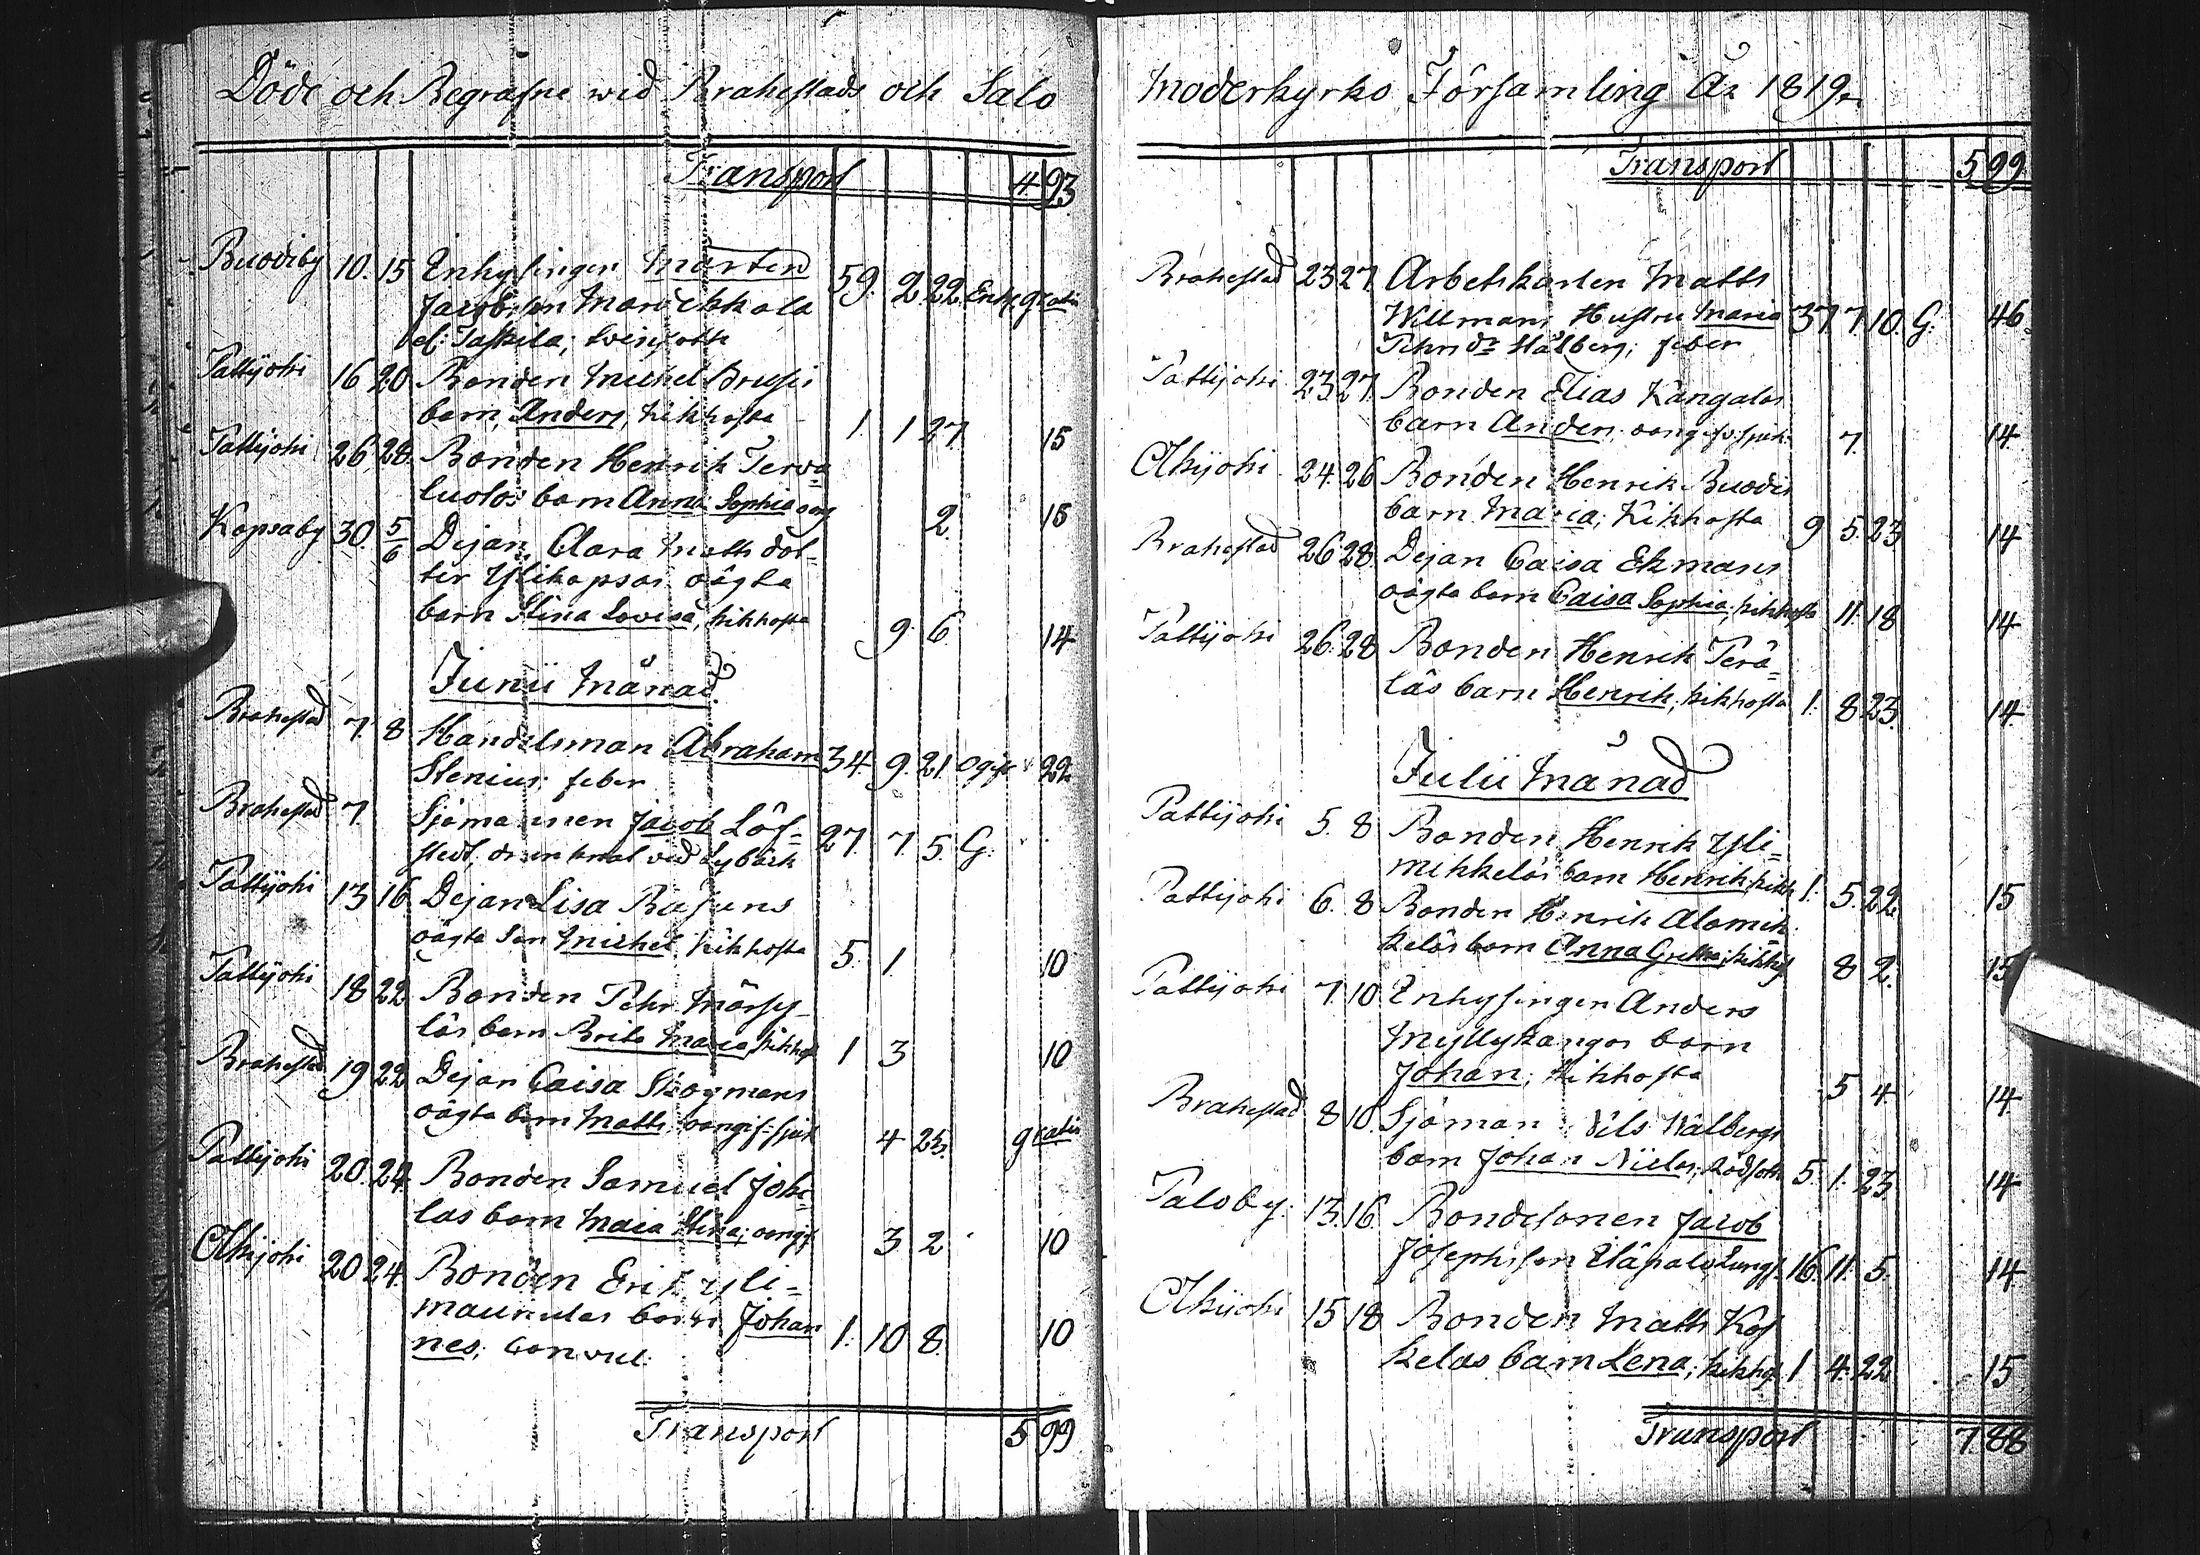 Döde och Begrafne wid Brahestads och Salo
Transport 493
Buodiby 10. 15 Inhysingen Mårten
Jacobsson 59. 2. 22. Enkl. gratis
Pattijoki 16 20 Bonden Michel Brusis
barn, Anders, kikhosta 1. 1 27. 15
Pattijoki 26 28. Bonden Henrik Terva=
luotos barn Anna Sophia 2. 15
Kopsaby 30. 5/6 Dejan Clara Matts dot-
ter Ylikopsas oägta
barn Stina Lovisa, kikhosta 9. 6 14
Junii Månad.
Brahestad 7. 8 Handelsman Abraham 34. 9. 21. Ogift 22
Stenius; feber
Brahestad 7. Sjömannen Jacob Löf= 27. 7. 5. G.
stedt, drunknat vid Lybäck
Pattijoki 13 16 Dejan Lisa
oägta Son Michel, kikhosta 5. 1 10
Pattijoki 18 22 Bonden Pehr
lös barn Brita Maria, kikhost 1 3 10
Brahestad 19 22 Dejan Caisa Skogmans
oägta barn Matts, oangif: sjuk 4 23. gratis
Pattijoki 20. 24. Bonden Samuel Joki=
las barn Maria Stina; oangif 3 2 10
Olkijoki 20 24. Bonden Erik Yli=
maunulas barn Johan 1. 10 8. 10
nes; convul:
Transport 599
Moderkyrko Församling År 1819
Transport 599
Brahestad 23 27. Arbetskarlen Matts
Willmans Hustru Maria 37. 7. 10. G. 46
Pehrsdr Hålberg; feber
Pattijoki 23 27. Bonden Elias Kangalas
barn Anders; oangif: sjuk 7. 14
Olkijoki 24. 26 Bonden Henrik Buodis
barn Maria; Kikhosta 9 5. 23 14
Brahestad 26 28. Dejan Caisa Ekmans
oägta barn Caisa Sophia, kikhosta 11. 18 14
Pattijoki 26. 28 Bonden Henrik Perä=
läs barn Henrik, kikhosta 1. 8 23. 14
Julii Månad
Pattijoki 5. 8 Bonden Henrik Yli=
mikkeläs barn Henrik, kikh 1. 5. 22. 15
Pattijoki 6. 8 Bonden Henrik Alamik
keläs barn Anna Greta; kikhos 8 2. 15
Pattijoki 7. 10. Inhysingen Anders
Myllykangas barn
Johan; Kikhosta 5 4. 14
Brahestad 8 10. Sjöman Nils Wålbergs
barn Johan Niclas; rödsot 5. 1. 23 14
Paloby. 13. 16. Bondesonen Jacob
Josephsson Lungs. 16. 11. 5. 14
Olkijoki 15 18. Bonden Matts Kos
kelas barn Lena; kikhos 1 4. 22 15
Transport 788